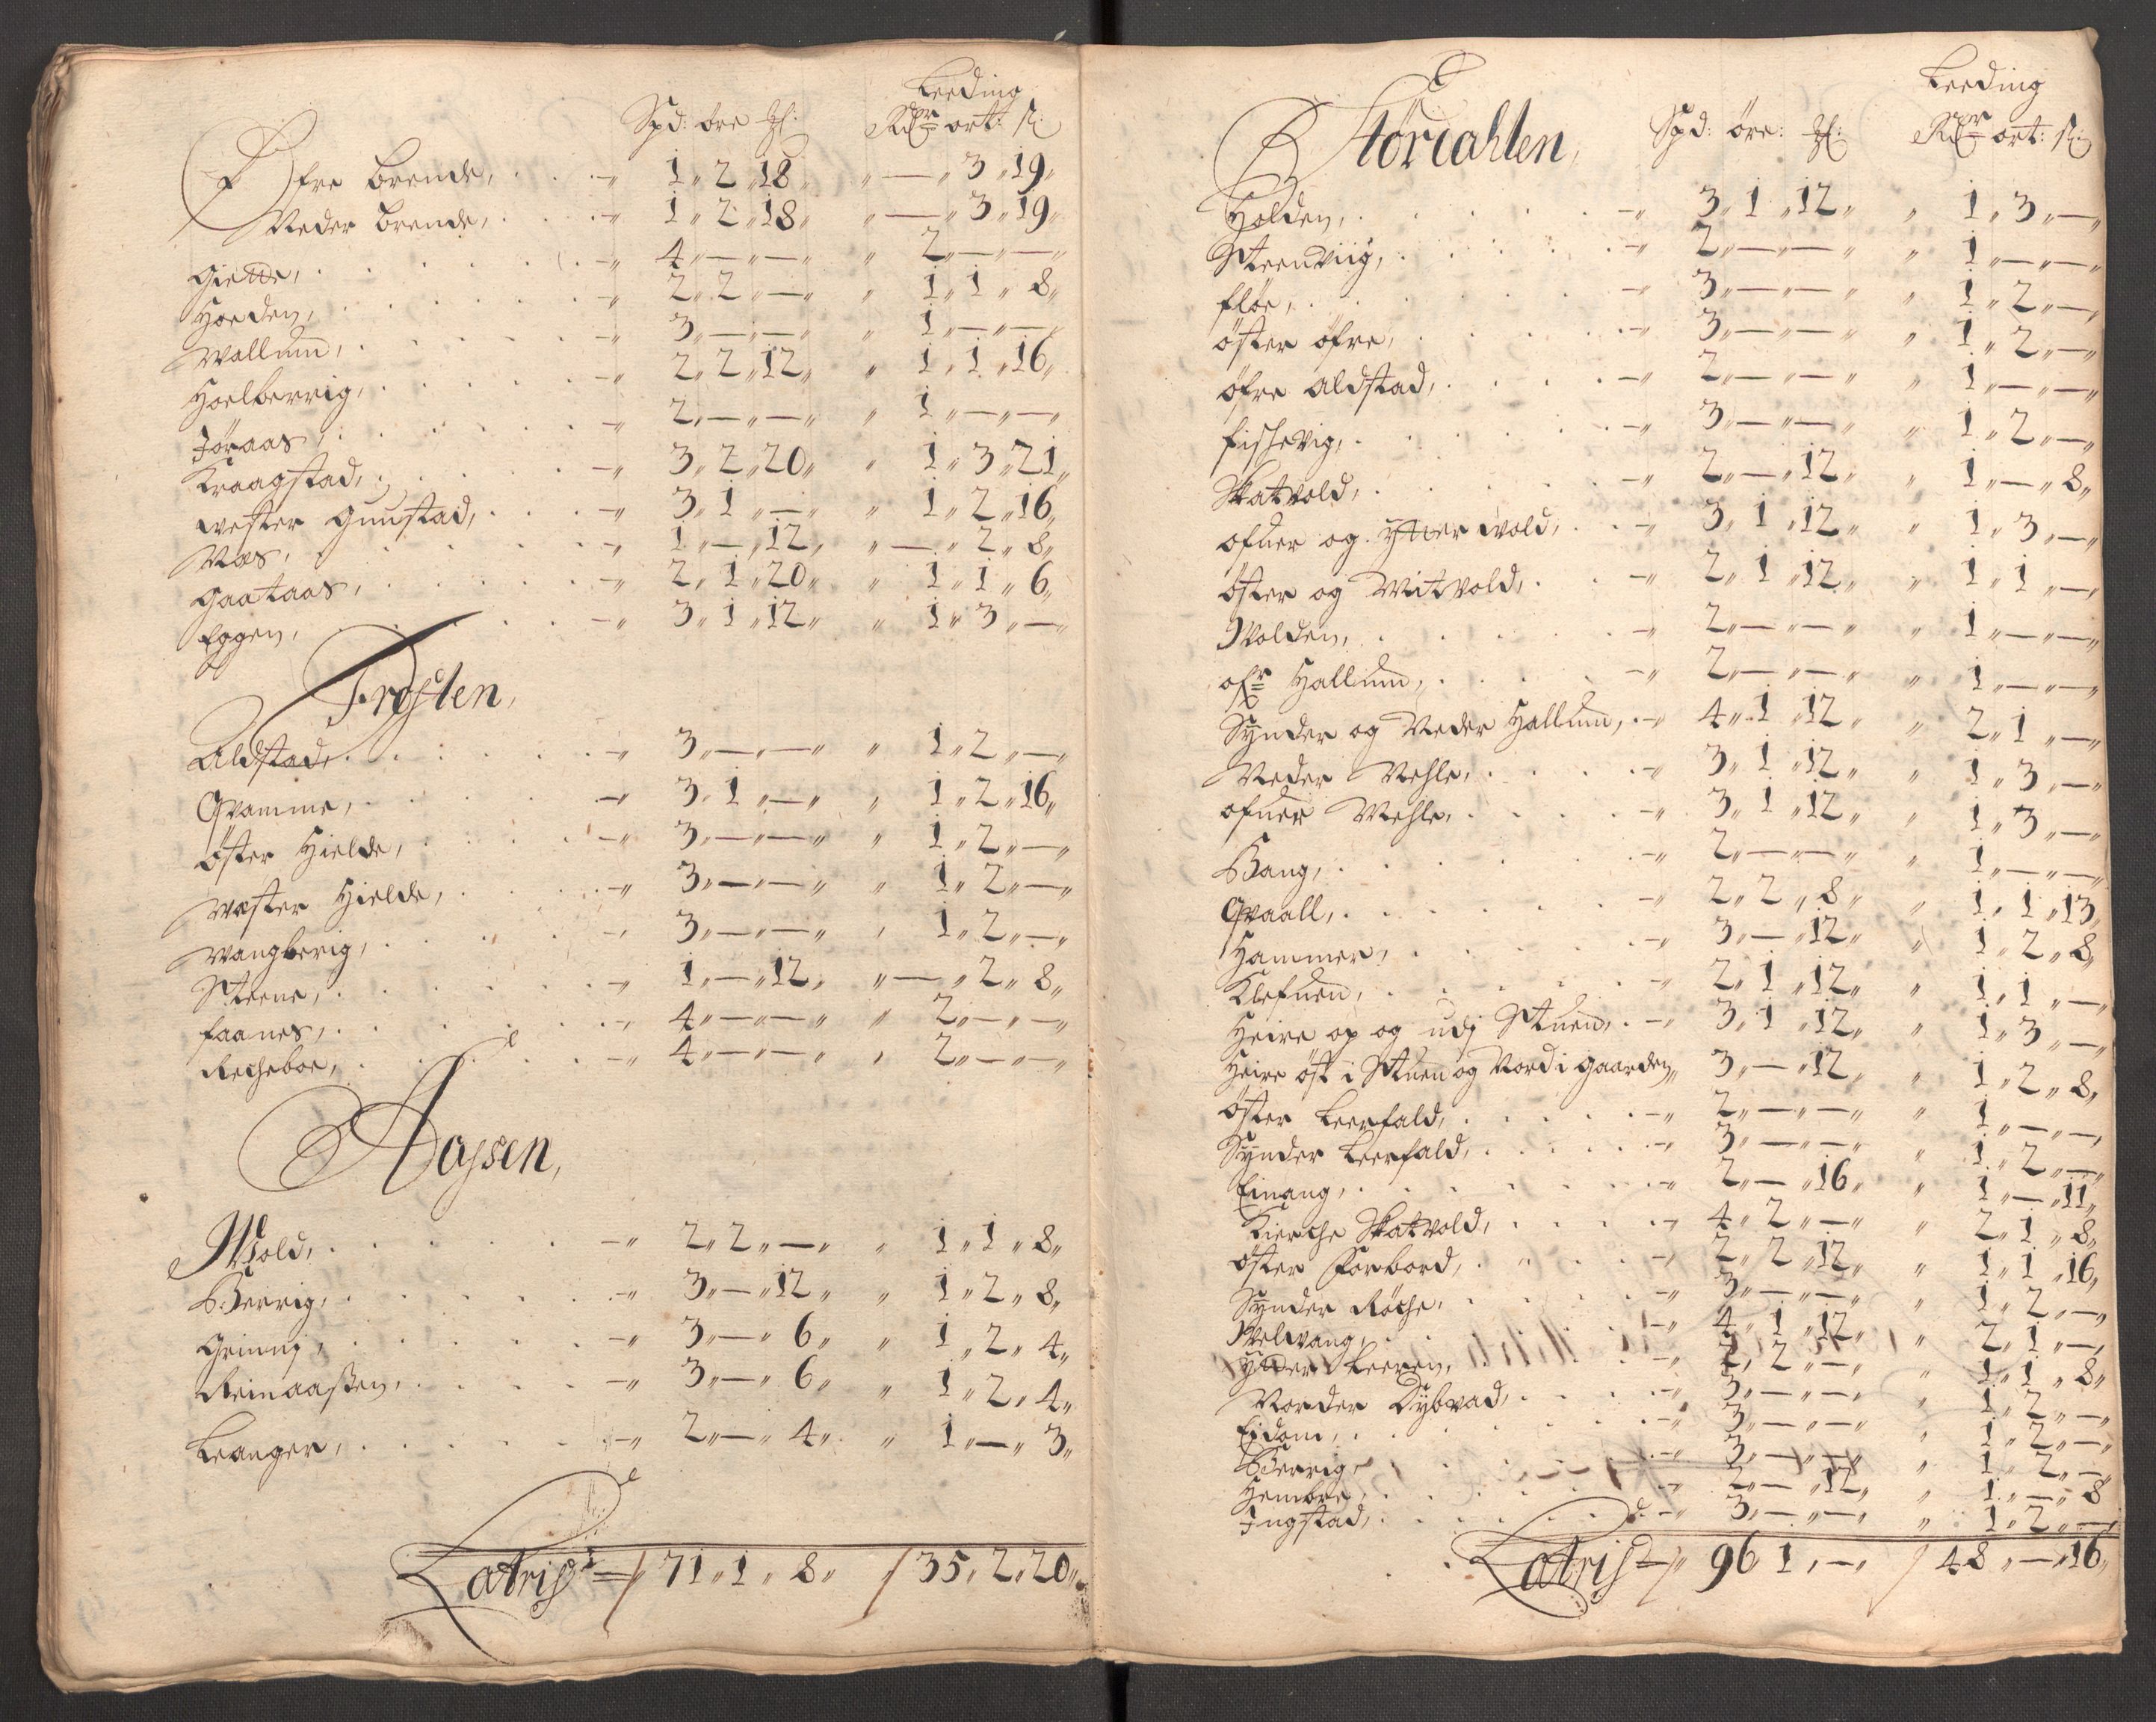 Leeding
Spd: öre [?]: Rdr ort: s:
Øfre Brende, 1 „ 2 „ 18 „ — „ 3 „ 19 „
Neder Brende, 1 „ 2 „ 18 „ — „ 3 „ 19 „
Giedde, 4 „ — „ — „ 2 „ — „ — „
Hoeden, 2 „ 2 „ — „ 1 „ 1 „ 8 „
Wollum, 3 „ — „ — „ 1 „ — „ — „
Hoelberrig, 2 „ 2 „ 12 „ 1 „ 1 „ 16 „
Jöraas, 2 „ — „ — „ 1 „ — „ — „
Kraagstad, 3 „ 2 „ 20 „ 1 „ 3 „ 21 „
Wester Gunstad, 3 „ 1 „ — „ 1 „ 2 „ 16 „
Næs, 1 „ — „ 12 „ — „ 2 „ 8 „
Gaataas, 2 „ 1 „ 20 „ 1 „ 1 „ 6 „
Eggen, 3 „ 1 „ 12 „ 1 „ 3 „ — „
Frosten,
Aldstad, 3 „ — „ — „ 1 „ 2 „ — „
Qvamme, 3 „ 1 „ — „ 1 „ 2 „ 16 „
Öster Hielde, 3 „ — „ — „ 1 „ 2 „ — „
Wester Hielde, 3 „ — „ — „ 1 „ 2 „ — „
Wangberig, 3 „ — „ — „ 1 „ 2 „ — „
Steene, 1 „ — „ 12 „ — „ 2 „ 8 „
Faanes, 4 „ — „ — „ 2 „ — „ — „
Recheboe, 4 „ — „ — „ 2 „ — „ — „
Aassen,
Wold, 2 „ 2 „ — „ 1 „ 1 „ 8 „
Berrig, 3 „ — „ 12 „ 1 „ 2 „ 8 „
Grinnj, 3 „ — „ 6 „ 1 „ 2 „ 4 „
Reinaassen, 3 „ — „ 6 „ 1 „ 2 „ 4 „
Leanger, 2 „ — „ 4 „ 1 „ — „ 3 „
Latris 71 „ 1 „ 8 „ 35 „ 2 „ 20 „
Leeding
Störiahlen, Spd: öre: Rdr ort: s:
Holden, 3 „ 1 „ 12 „ 1 „ 3 „ — „
Steenviig, 2 „ — „ — „ 1 „ — „ — „
Floe, 3 „ — „ — „ 1 „ 2 „ — „
öster öfre, 3 „ — „ — „ 1 „ 2 „ — „
öfre Aldstad, 2 „ — „ — „ 1 „ — „ — „
Fischevig, 3 „ — „ — „ 1 „ 2 „ — „
Skatvold, 2 „ — „ 12 „ 1 „ — „ 8 „
ofuer og ytter wold, 3 „ 1 „ 12 „ 1 „ 3 „ — „
öster og Mitvold, 2 „ 1 „ 12 „ 1 „ 1 „ — „
Wolden, 2 „ — „ — „ 1 „ — „ — „
ofr Hallum, 2 „ — „ — „ 1 „ — „ — „
Synder og Neder Hallum, 4 „ 1 „ 12 „ 2 „ 1 „ — „
Neder Mehle, 3 „ 1 „ 12 „ 1 „ 3 „ — „
ofuer Mehle, 3 „ 1 „ 12 „ 1 „ 3 „ — „
Bang, 2 „ — „ — „ 1 „ — „ — „
Qvaall, 2 „ 2 „ 8 „ 1 „ 1 „ 13 „
Hammer, 3 „ — „ 12 „ 1 „ 2 „ 8 „
Klefuen, 2 „ 1 „ 12 „ 1 „ 1 „ — „
Heire op og udj Stuen, 3 „ 1 „ 12 „ 1 „ 3 „ — „
Heire öst i Stuen og Nord i gaarden, 3 „ — „ 12 „ 1 „ 2 „ 8 „
öster Leerfald, 2 „ — „ — „ 1 „ — „ — „
Synder Leerfald, 3 „ — „ — „ 1 „ 2 „ — „
Einang, 2 „ — „ 16 „ 1 „ — „ 11 „
Kierche Skatvold, 4 „ 2 „ — „ 2 „ 1 „ 8 „
öster Forbord, 2 „ 2 „ 12 „ 1 „ 1 „ 16 „
Synder Röche, 3 „ — „ — „ 1 „ 2 „ — „
Welwang, 4 „ 1 „ 12 „ 2 „ 1 „ — „
Ytter Leeren, 2 „ 2 „ — „ 1 „ 1 „ 8 „
Norder Dybvad, 3 „ — „ — „ 1 „ 2 „ — „
Eidom, 3 „ — „ — „ 1 „ 2 „ — „
Berrig, 3 „ — „ — „ 1 „ 2 „ — „
Hemore, 2 „ — „ 12 „ 1 „ — „ 8
Ingstad, 3 „ — „ — „ 1 „ 2 „ — „
Latris 96 1 „ — „ 48 „ — „ 16 „